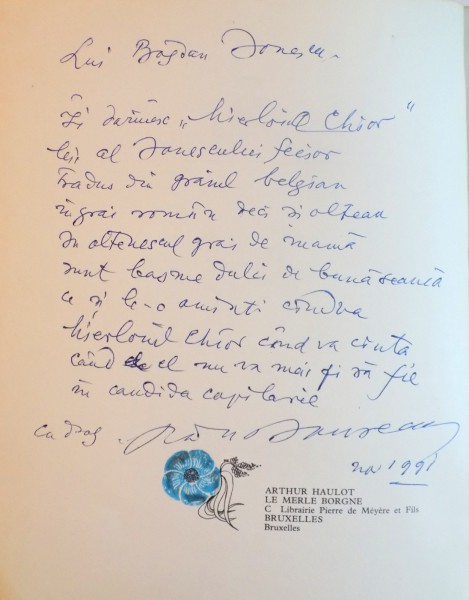 Lui Bogdan Ionescu.
Îți dăruiesc „Mierloiul Chior"
lui al Ionescului fecior
tradus din graiul belgian
în grai român deci și oltean
În oltenescul grai de mamă
sunt basme dulci de bună seamă
ce și le-o aminti cîndva
Mierloiul Chior cînd va cînta
când el nu va mai fi să fie
în candida copilărie
cu drag
nov 1991
ARTHUR HAULOT
LE MERLE BORGNE
C Librairie Pierre de Méyère et Fils
BRUXELLES
Bruxelles